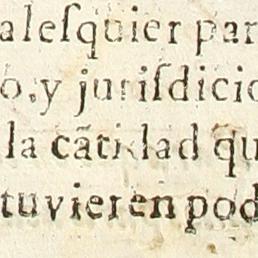 alesquier par
o, y jurisdicio
la cãtidad qu
tuvieren pod